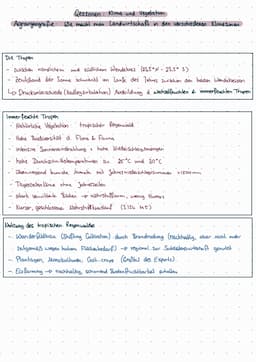 Geozonen: Klima und Vegetation
Agrargeografie: Wie macht man Landwirtschaft in den verschiedenen Klimazonen
Die Tropen
- zwischen nördlichem und südlichem Wendekreis (23,5° N - 23,5° S)
- Zenitstand der Sonne schwankt im Laufe des Jahres zwischen den beiden Wendekreisen
↳ Druckunterschiede (Luftzirkulation) Ausbildung d. wechselfeuchten & immerfeuchten Tropen
Immerfeuchte Tropen
- Natürliche Vegetation: tropischer Regenwald
- Hohe Biodiversität d. Flora & Fauna
- intensive Sonneneinstrahlung + hohe Niederschlagsmengen
- hohe Durchschnittstemperaturen zw. 25°C und 30°C
- Überwiegend humide Monate mit Jahresniederschlagssummen
- Tageszeitenklima ohne Jahreszeiten
- stark verwitterte Böden → nährstoffarm, wenig Humus
- Kurzer, geschlossener Nährstoffkreislauf
Nutzung des tropischen Regenwaldes
- Wanderfeldbau (Shifting Cultivation) durch Brandrodung (nachhaltig, aber nicht mehr
zeitgemäß wegen hohem Flächenbedarf) → regional zur Subsistenzwirtschaft genutzt
- Plantagen, Monokulturen: Cash-crops (Großteil des Exports)
- Ecofarming → nachhaltig, schonend Bodenfruchtbarkeit erhalten